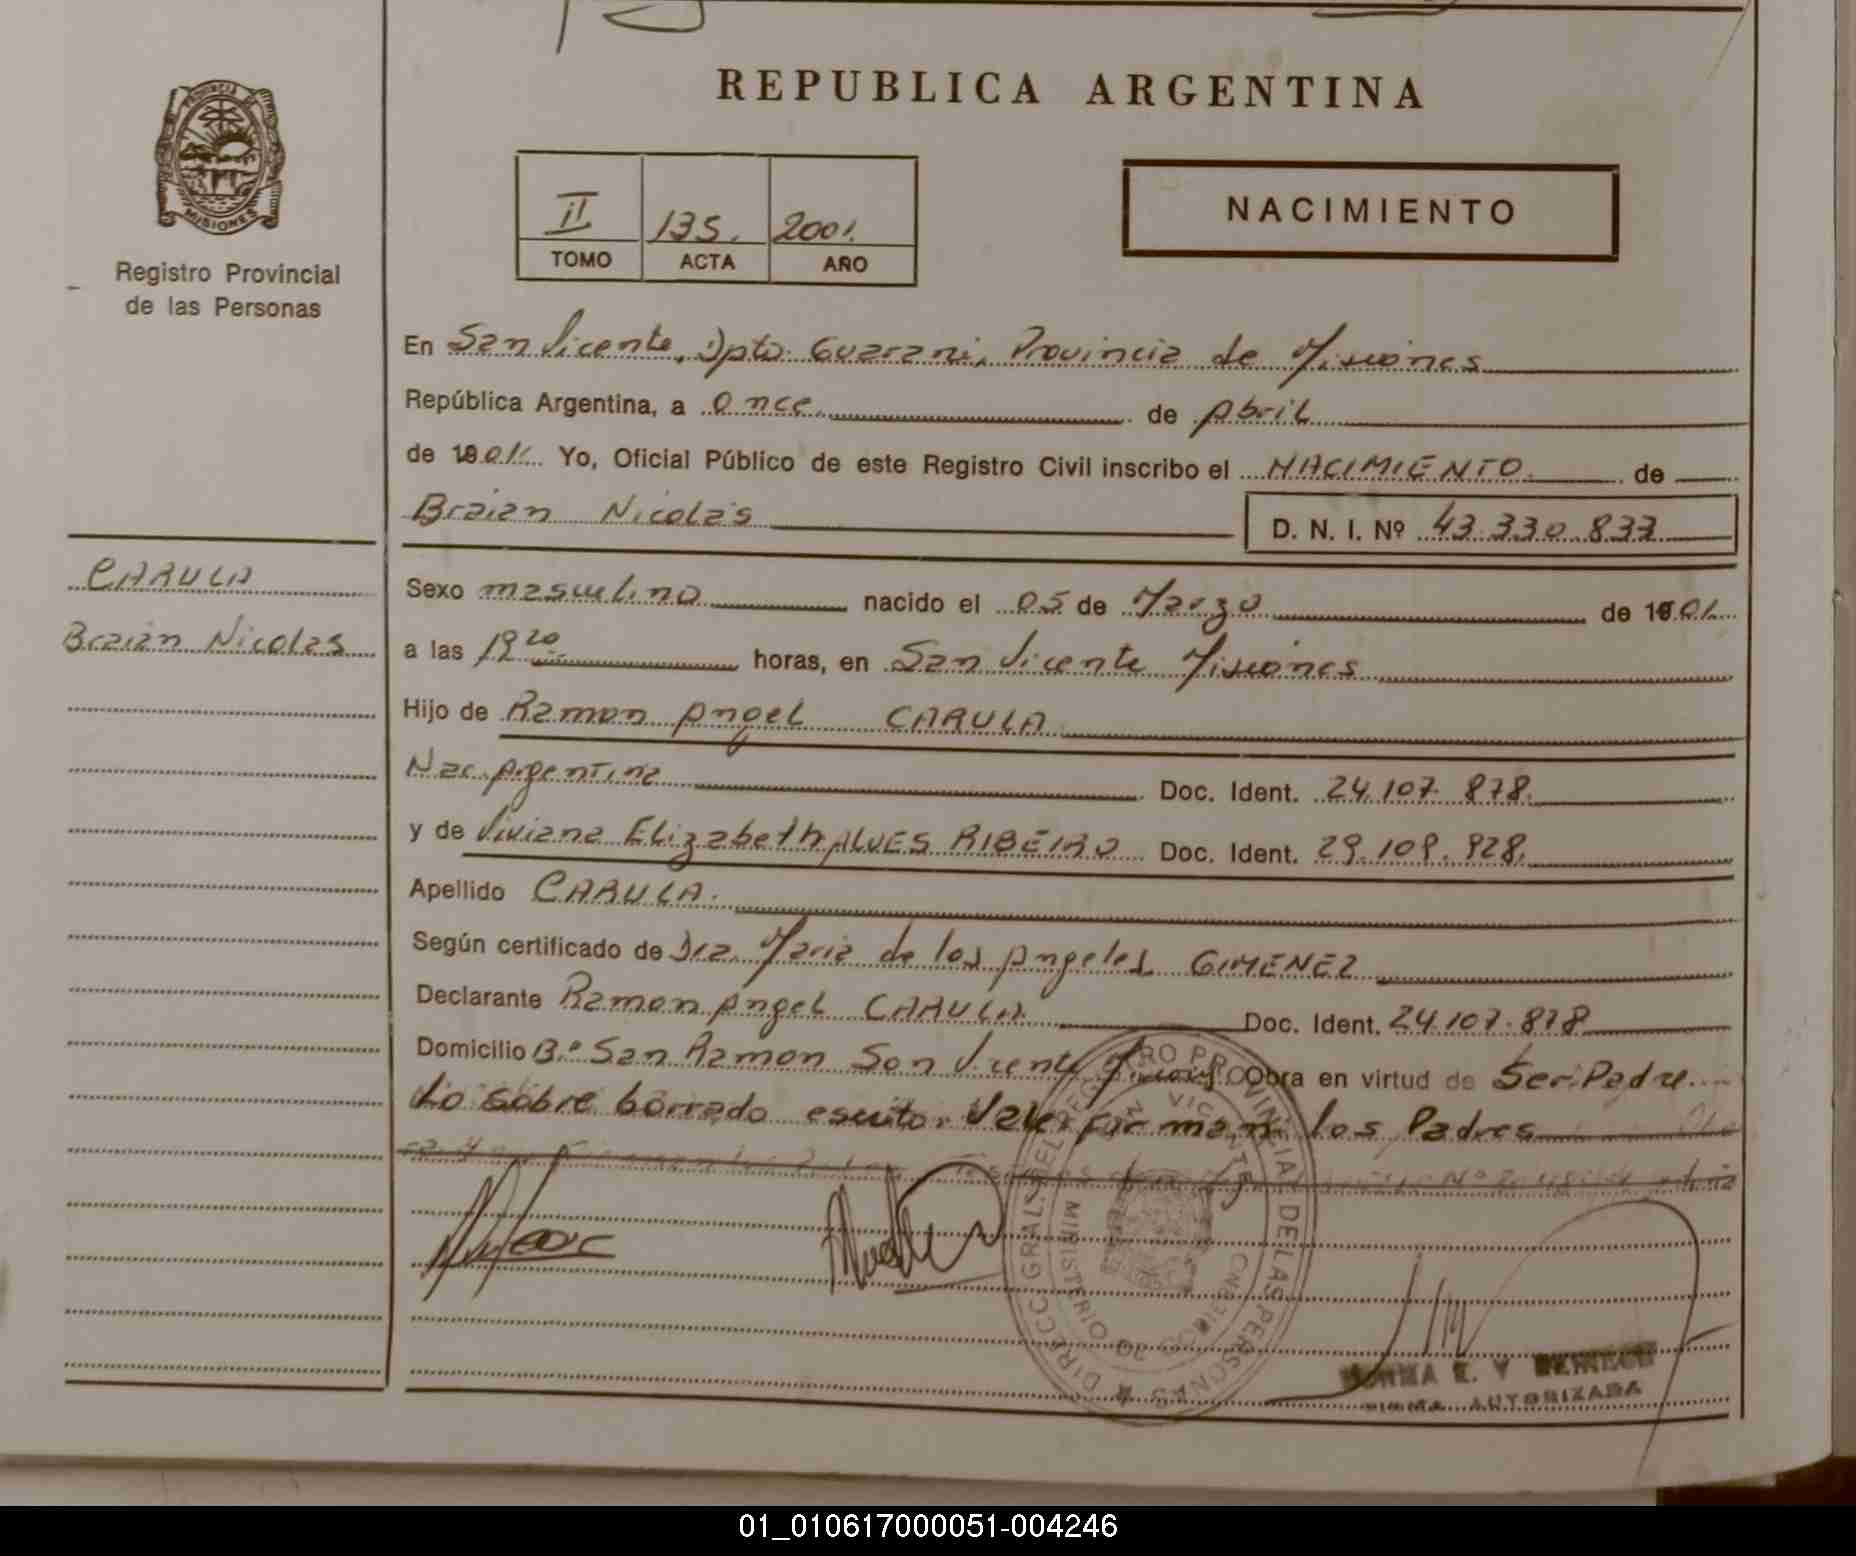 REPUBLICA ARGENTINA
PROVINCIA DE
MISIONES
Registro Provincial
de las Personas
II 135. 2001.
TOMO ACTA AÑO
NACIMIENTO
En San Vicente, Dpto. Guarani, Provincia de Misiones
República Argentina, a once de Abril
de 1901. Yo, Oficial Público de este Registro Civil inscribo el NACIMIENTO. de
Braian Nicolás
D. N. I. Nº 43.330.833
CARULA
Braian Nicolas
Sexo masculino nacido el 05 de Marzo de 1901.
a las 19 20 horas, en San Vicente Misiones
Hijo de Ramon Angel CARULA
Nac. Argentina Doc. Ident. 24.107.878.
y de Viviana Elizabeth ALVES RIBEIRO Doc. Ident. 29.109.928.
Apellido CARULA.
Según certificado de Dra. Maria de los Angeles GIMENEZ
Declarante Ramon Angel CARULA Doc. Ident. 24.107.878
Domicilio B.º San Ramon San Vicente Obra en virtud de Ser Padre.
Lo sobre borrado escrito. Vale. firman los Padres
DIRECC. GRAL. DEL REGISTRO PROVINCIAL DE LAS PERSONAS
MINISTERIO DE GOBIERNO
VICENTE
E. Y
FIRMA AUTORIZADA
01_010617000051-004246